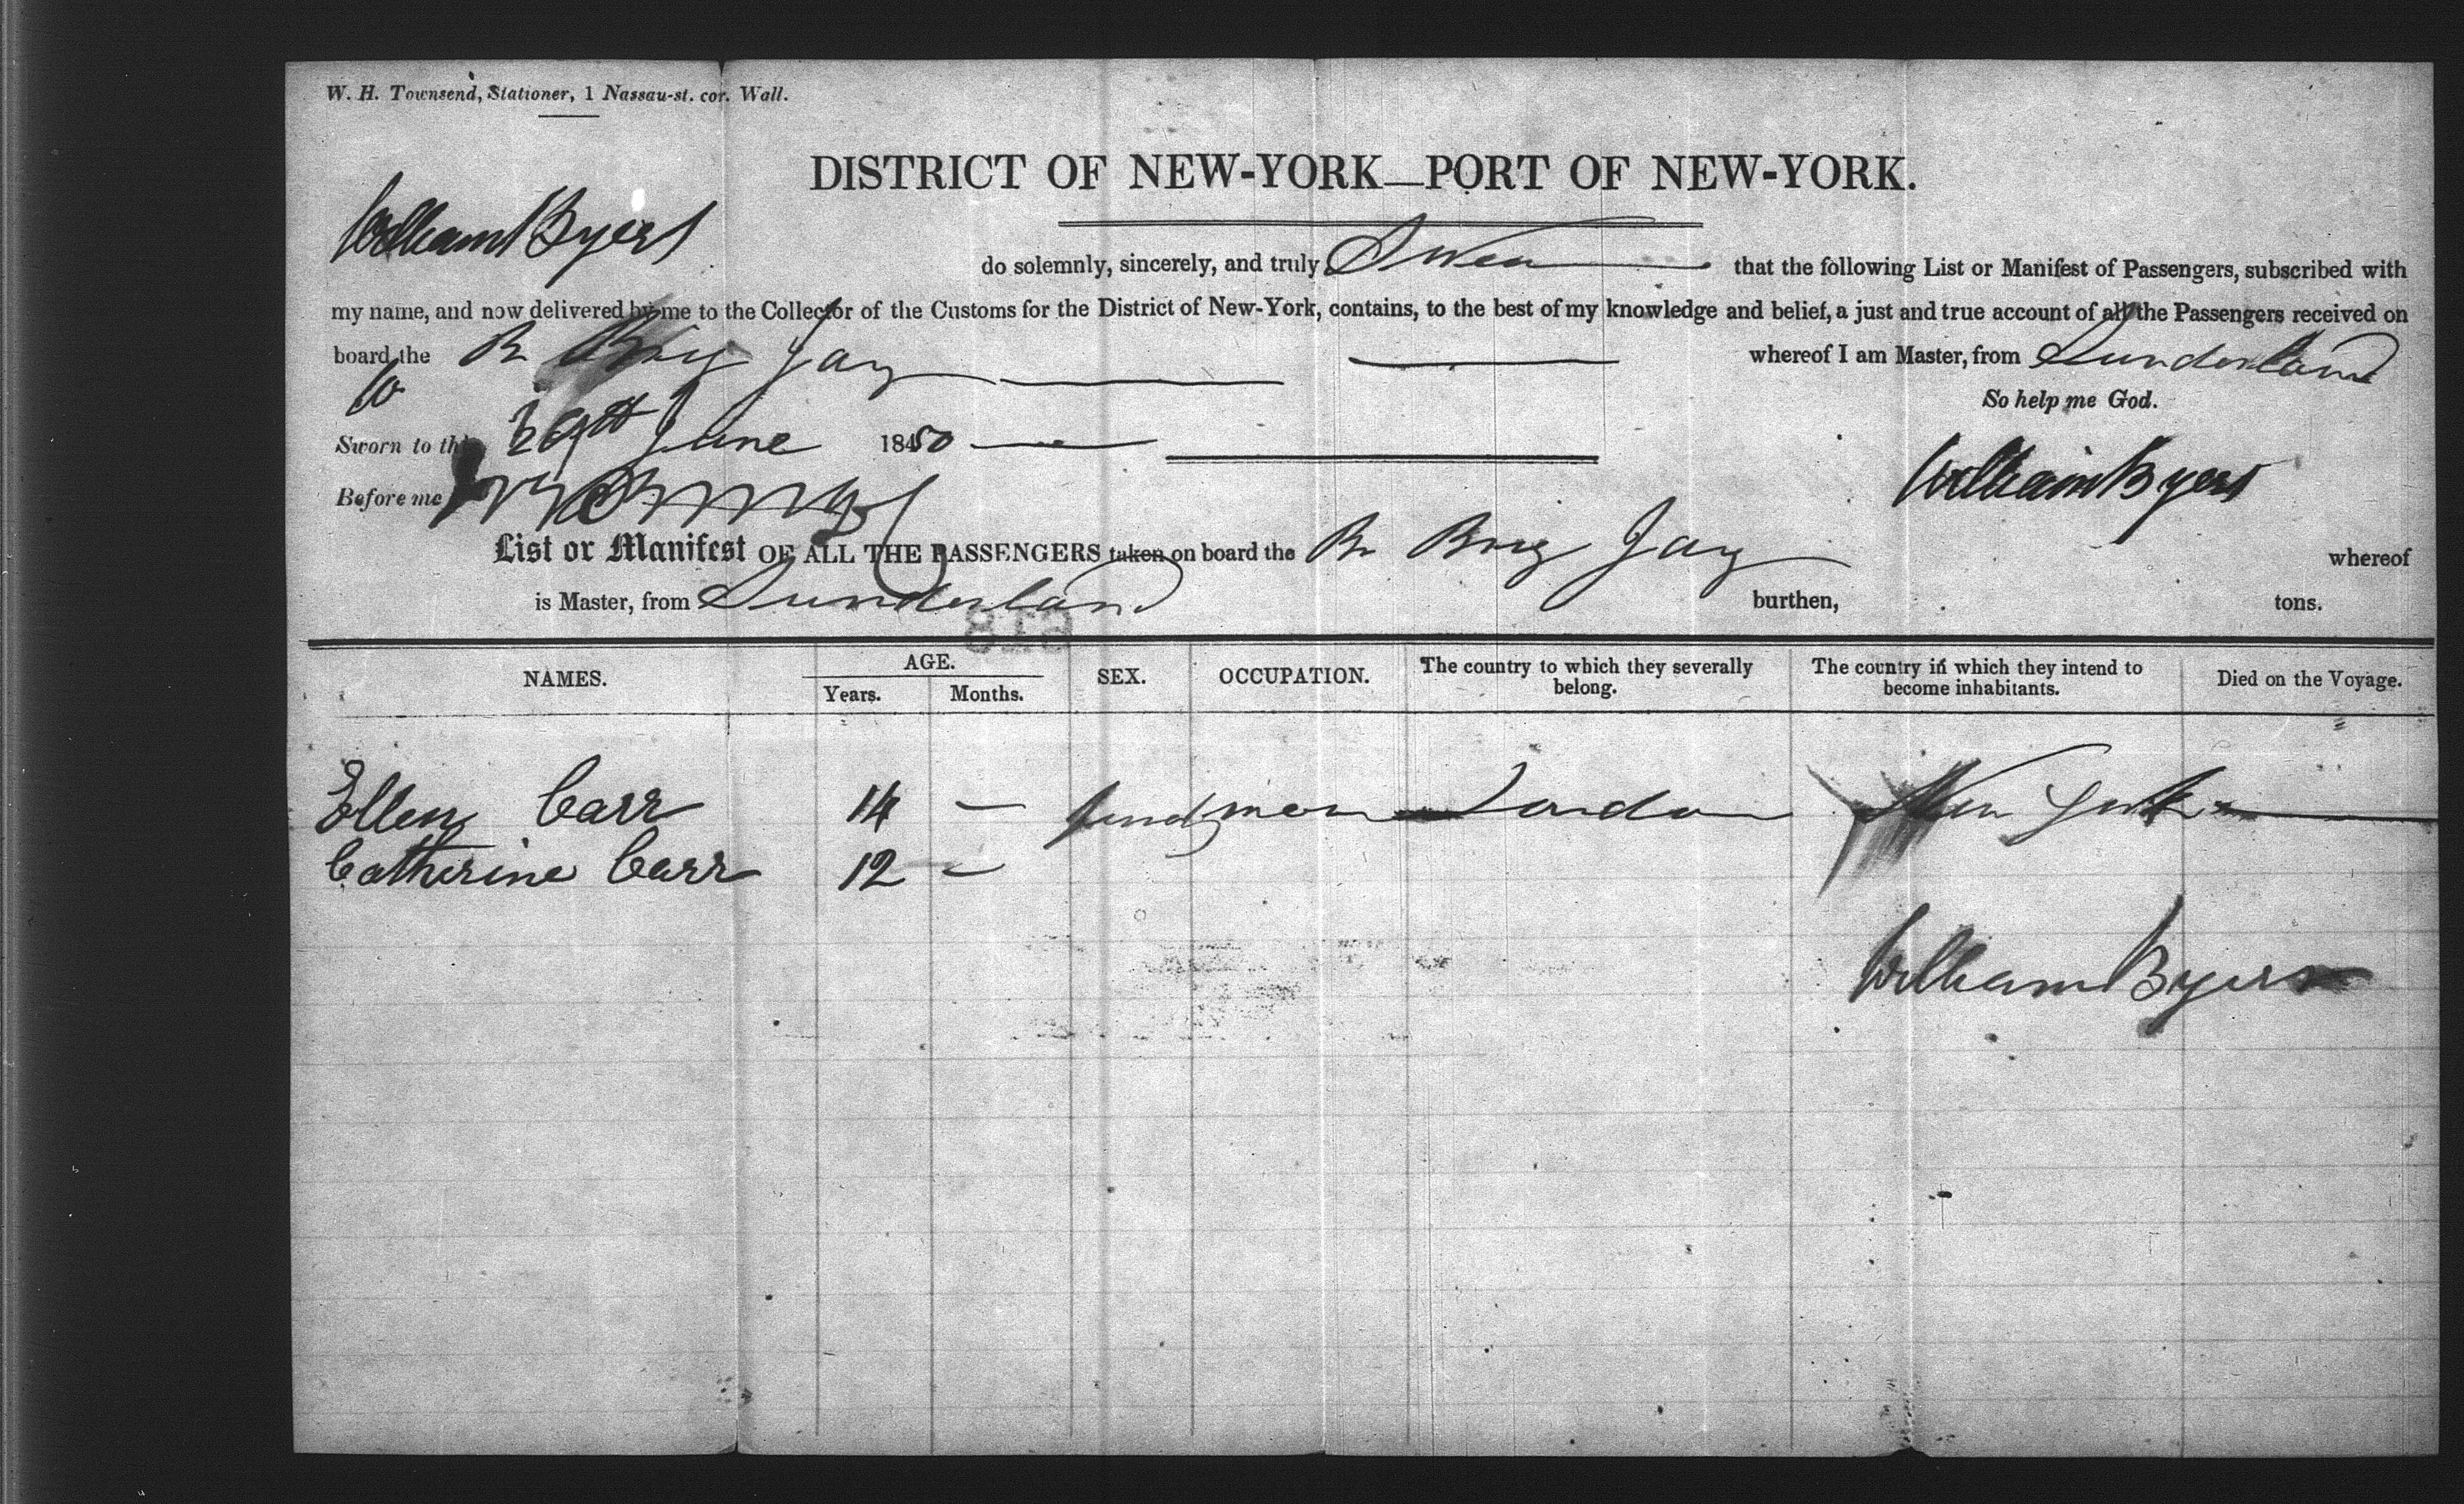 W. H. Townsend, Stationer, 1 Nassau-st. cor. Wall.
DISTRICT OF NEW-YORK—PORT OF NEW-YORK.
William Byers do solemnly, sincerely, and truly Swear that the following List or Manifest of Passengers, subscribed with
my name, and now delivered by me to the Collector of the Customs for the District of New-York, contains, to the best of my knowledge and belief, a just and true account of all the Passengers received on
board the Br Brig Jay whereof I am Master, from Sunderland
So help me God.
Sworn to this 29th June 1850
William Byers
Before me
List or Manifest OF ALL THE PASSENGERS taken on board the Br Brig Jay whereof
is Master, from Sunderland burthen, tons.
818
NAMES. AGE. SEX. OCCUPATION. The country to which they severally belong. The country in which they intend to become inhabitants. Died on the Voyage.
Years. Months.
Ellen Carr 14 — London New York
Catherine Carr 12 —
William Byers